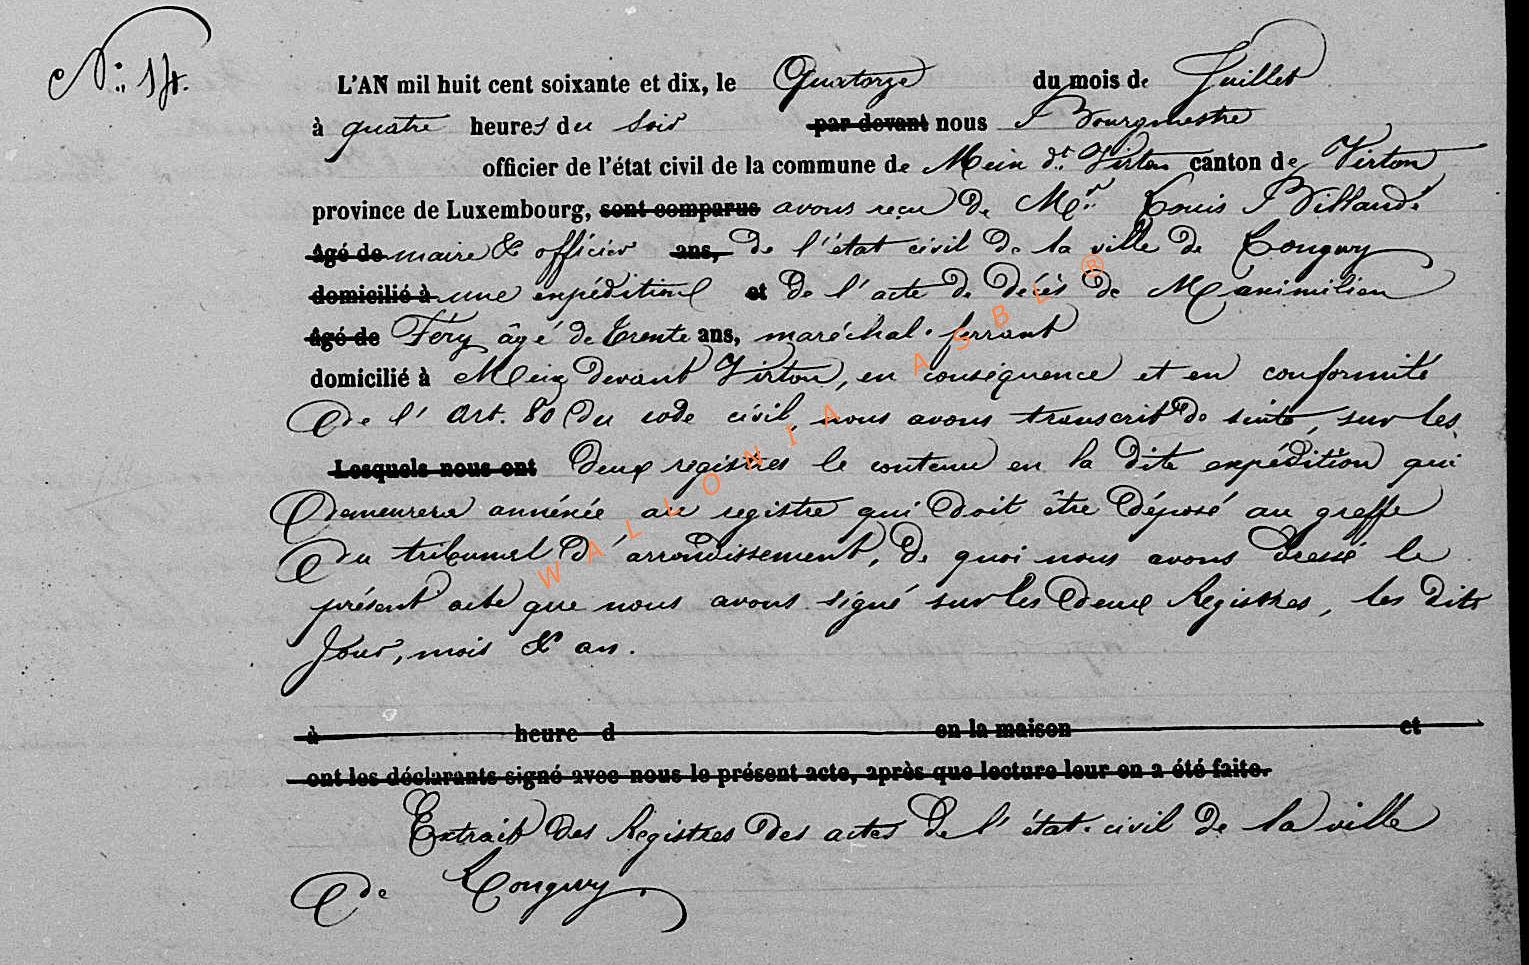 N°: 14.
L'AN mil huit cent soixante et dix, le Quatorze du mois de Juillet
à quatre heures du soir par devant nous Bourgmestre
officier de l'état civil de la commune de Meix dt Virton canton de Virton
province de Luxembourg, sont comparus avons reçu de Mr. Louis Billaudé
âgé de maire & officier ans, de l'état civil de la ville de Longwy
domicilié à une expédition et de l'acte de décès de Maximilien
âgé de Féry âgé de trente ans, maréchal-ferrant
domicilié à Meix devant Virton, en conséquence et en conformité
de l'Art. 80 du code civil, nous avons transcrit de suite, sur les
Lesquels nous ont deux registres le contenu en la dite expédition qui
demeurera annéxée au registre qui doit être déposé au greffe
du tribunal d'arrondissement, de quoi nous avons dressé le
présent acte que nous avons signé sur les deux Registres, les dits
Jour, mois & an.
à heure d en la maison et
ont les déclarants signé avec nous le présent acte, après que lecture leur en a été faite.
Extrait des Registres des actes de l'état-civil de la ville
de Longwy.
WALLONIA ASBL ®